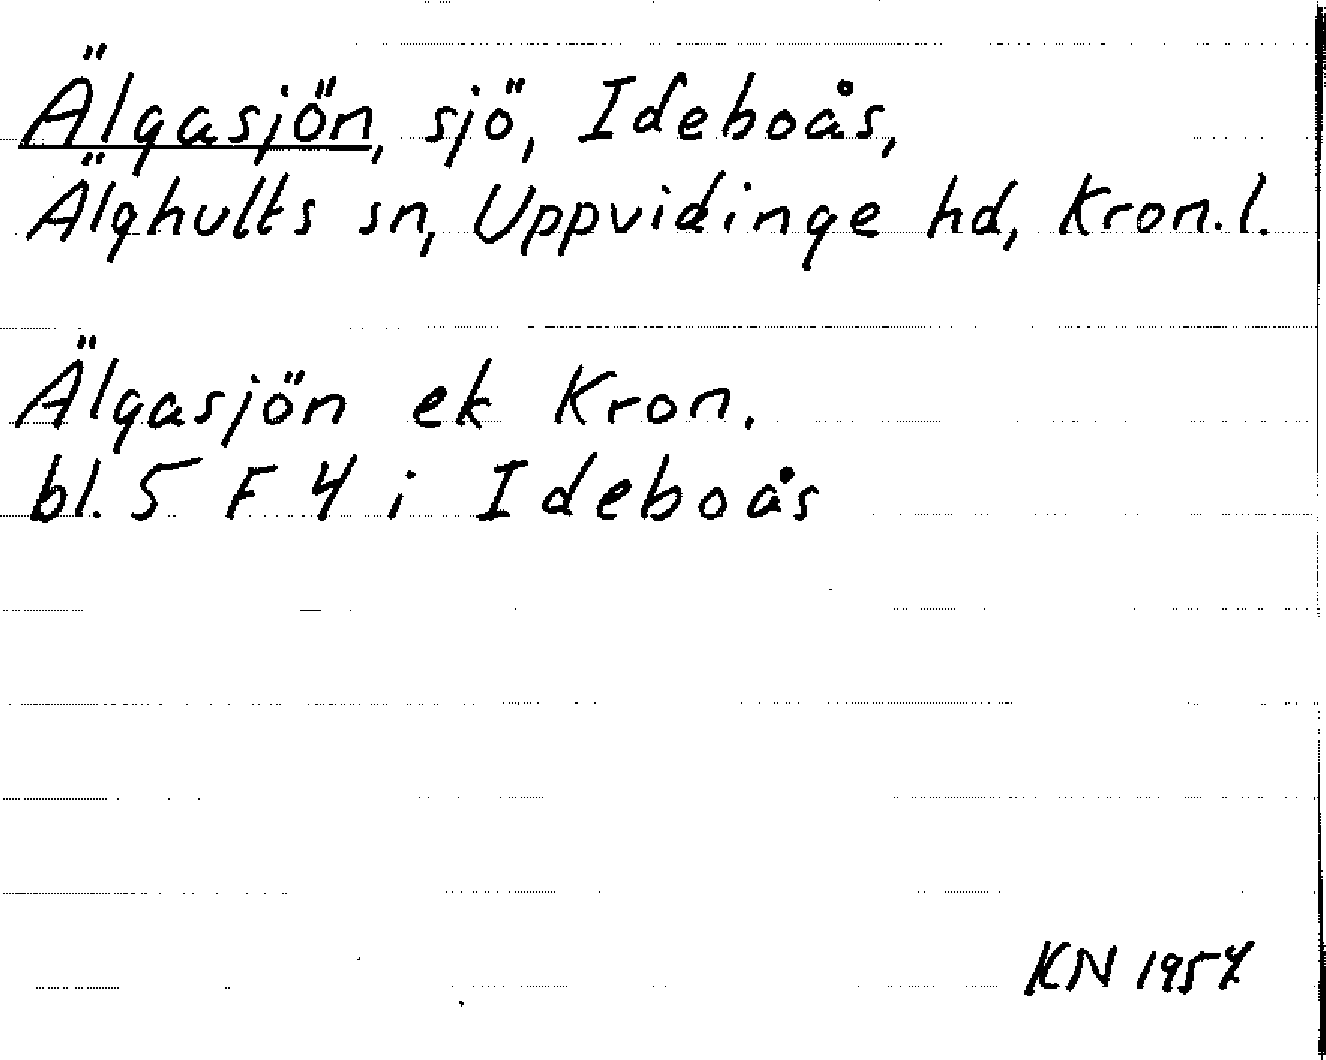 Älgasjön, sjö, Ideboås,
Älghults sn, Uppvidinge hd, Kron. l.
Älgasjön ek Kron.
bl. 5 F 4 i Ideboås
KN 1957